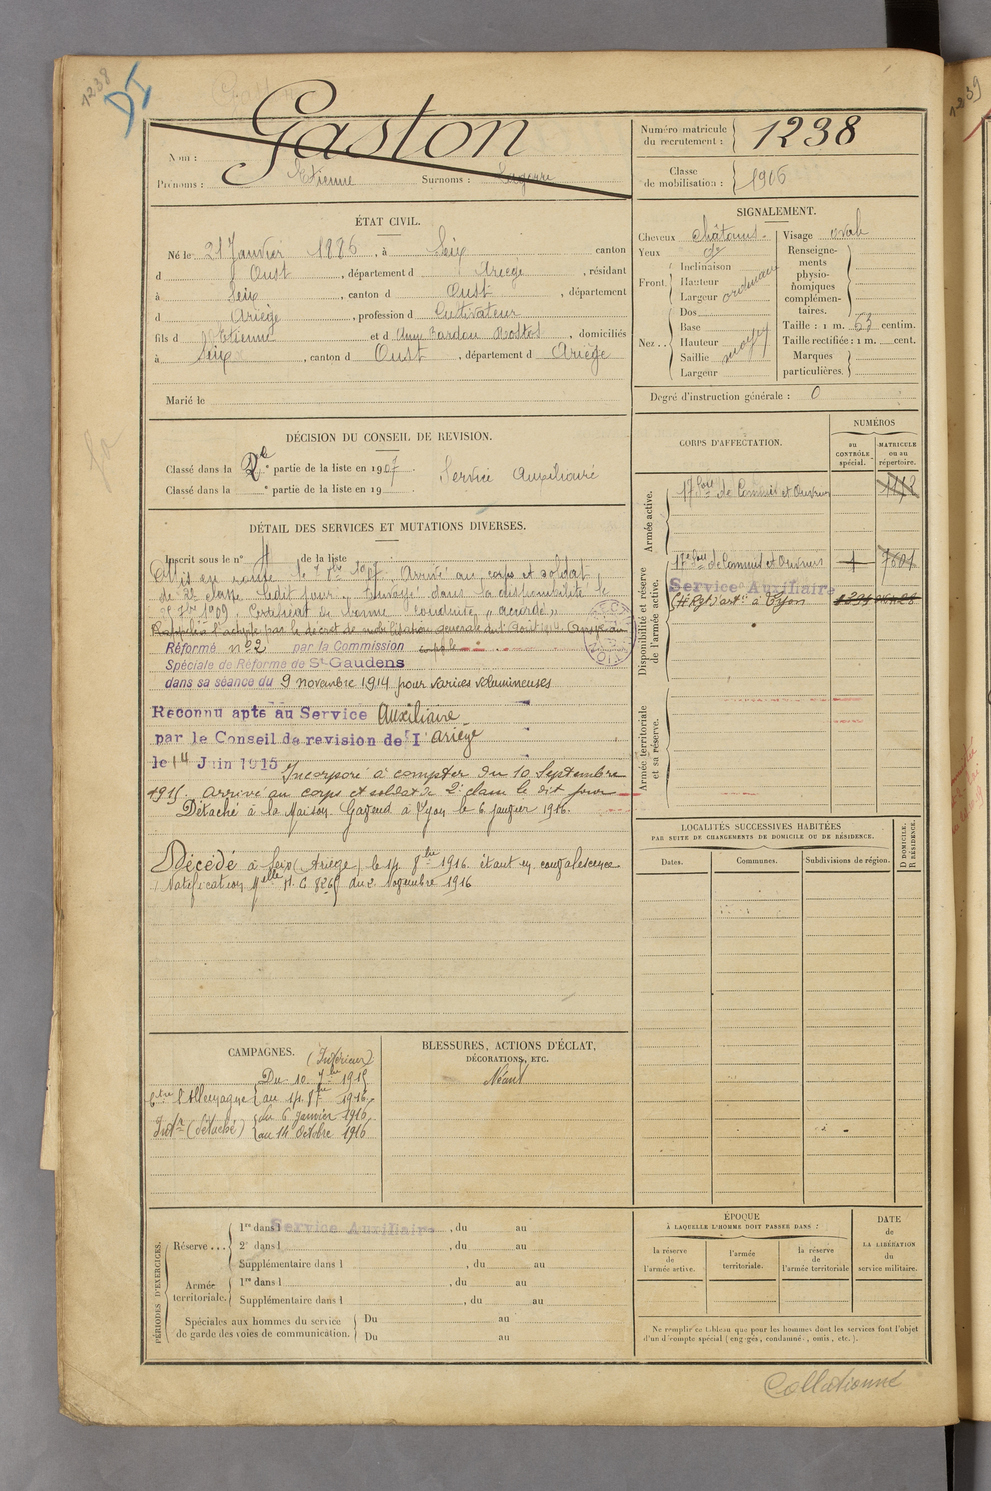 1238
DI
Nom : Gaston
Prénoms : Etienne Surnoms :
Numéro matricule du recrutement : 1238
Classe de mobilisation : 1906
ÉTAT CIVIL.
Né le 21 Janvier 1886, à Seix canton
d Oust, département d Ariège, résidant
à Seix, canton d Oust, département
d Ariège, profession d Cultivateur
fils d Etienne et d Anne, domiciliés
à Seix, canton d Oust, département d Ariège
Marié le
SIGNALEMENT.
Cheveux châtains Visage ovale
Yeux do
Front. Inclinaison
Hauteur
Largeur
ordinaire
Nez.. Dos
Base
Hauteur
Saillie
Largeur
moyen
Renseignements physionomiques complémentaires.
Taille : 1 m. 63 centim.
Taille rectifiée : 1 m. cent.
Marques particulières.
Degré d'instruction générale : 0
DÉCISION DU CONSEIL DE REVISION.
Classé dans la 2e partie de la liste en 1907. Service Auxiliaire
Classé dans la e partie de la liste en 19
CORPS D'AFFECTATION.
NUMÉROS
au CONTRÔLE spécial.
MATRICULE ou au répertoire.
Armée active.
17e Son de Commis et Ouvriers
Disponibilité et réserve de l'armée active.
17e Son de Commis et Ouvriers 7601
Service Auxiliaire
à Lyon
Armée territoriale et sa réserve.
DÉTAIL DES SERVICES ET MUTATIONS DIVERSES.
Inscrit sous le n° de la liste
Mis en route le 7 8bre 1907, Arrivé au corps et soldat
de 2e classe ledit jour. Envoyé dans la disponibilité le
25 7bre 1909. Certificat de bonne conduite "accordé"
Rappelé à l'activité par le décret de mobilisation générale du 1 Août 1914.
Réformé n° 2 par la Commission
Spéciale de Réforme de St Gaudens
dans sa séance du 9 novembre 1914 pour varices volumineuses
Reconnu apte au Service Auxiliaire
par le Conseil de revision de l'Ariège
le 14 Juin 1915 Incorporé à compter du 10 Septembre
1915. arrivé au corps et soldat de 2e classe le dit jour
Détaché à la Maison à Lyon le 6 janvier 1916.
Décédé à Seix (Ariège) le 14 8bre 1916 étant en convalescence
Notification Melle du 2 Novembre 1916
LOCALITÉS SUCCESSIVES HABITÉES
PAR SUITE DE CHANGEMENTS DE DOMICILE OU DE RÉSIDENCE.
Dates. Communes. Subdivisions de région.
D DOMICILE. R RÉSIDENCE.
CAMPAGNES.
(Intérieur)
Du 10 7bre 1915
Ctre l'Allemagne au 14 8bre 1916
Intr (détaché) du 6 Janvier 1916
au 14 Octobre 1916
BLESSURES, ACTIONS D'ÉCLAT,
DÉCORATIONS, ETC.
Néant
PÉRIODES D'EXERCICES.
Réserve... 1re dans l Service Auxiliaire, du au
2e dans l, du au
Supplémentaire dans l, du au
Armée territoriale. 1re dans l, du au
Supplémentaire dans l, du au
Spéciales aux hommes du service de garde des voies de communication. Du au
Du au
ÉPOQUE
À LAQUELLE L'HOMME DOIT PASSER DANS :
la réserve de l'armée active.
l'armée territoriale.
la réserve de l'armée territoriale
DATE de LA LIBÉRATION du service militaire.
Ne remplir ce tableau que pour les hommes dont les services font l'objet
d'un décompte spécial (engagés, condamnés, omis, etc.).
Collationné
1239